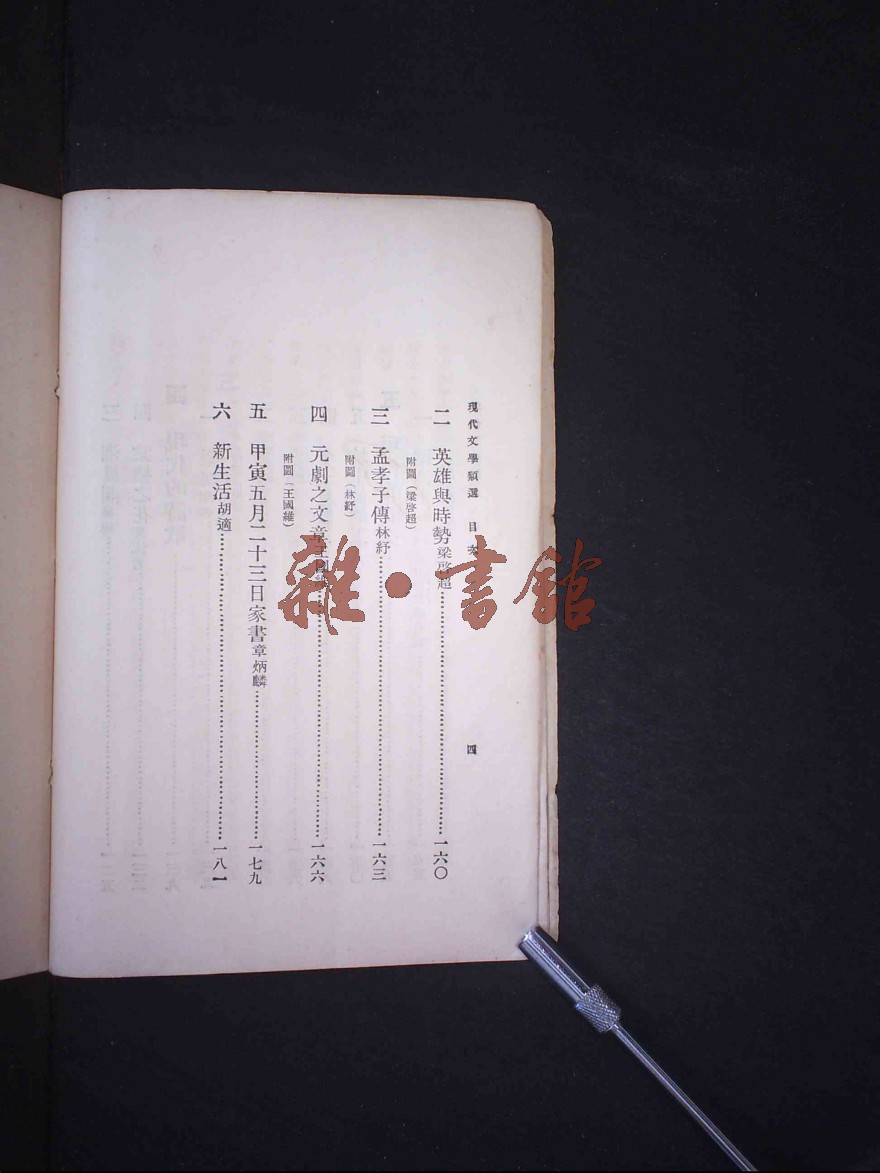 現代文學類選 目次 四
二 英雄與時勢 梁啓超……一六〇
附圖（梁啓超）
三 孟孝子傳 林紓……一六三
附圖（林紓）
四 元劇之文章 王國維……一六六
附圖（王國維）
五 甲寅五月二十三日家書 章炳麟……一七九
六 新生活 胡適……一八一
雜·書館